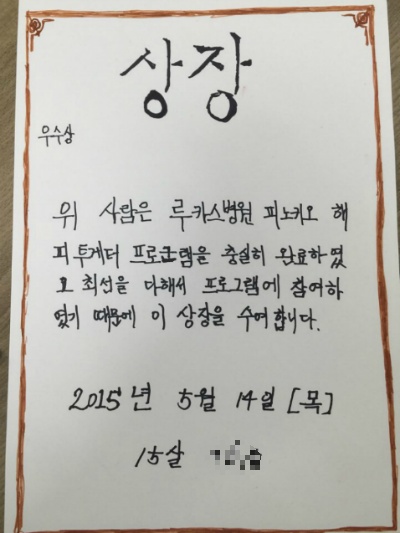 상장
우수상
위 사람은 루카스병원 피노키오 해
피투게더 프로그램을 충실히 완료하였
고 최선을 다해서 프로그램에 참여하
였기 때문에 이 상장을 수여합니다.
2015년 5월 14일 [목]
15살